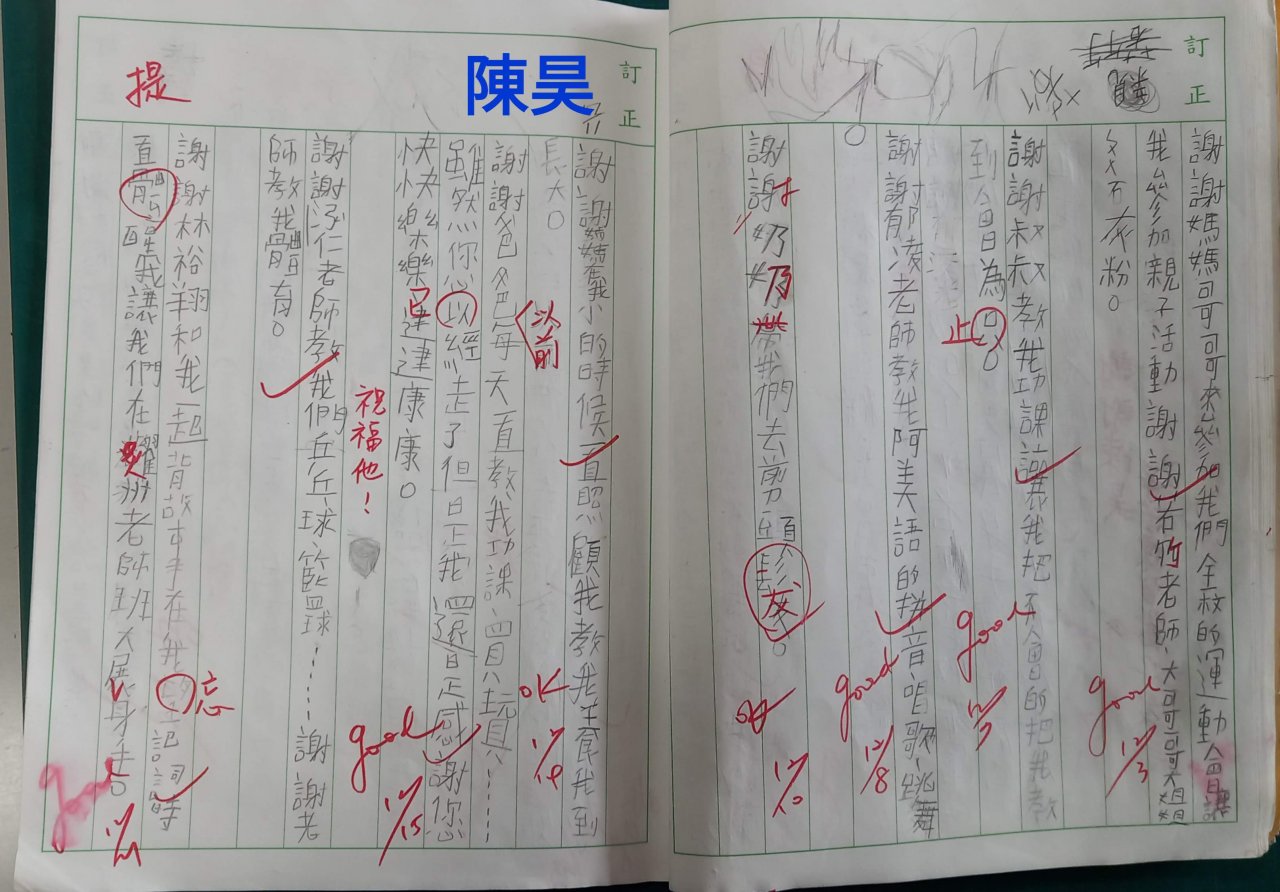 訂正
謝謝媽媽可可可來參加我們全校的運動會讓
我參加親子活動謝謝若筑老師、大可哥哥姐姐
ㄆㄞ灰粉。
謝謝叔叔教我功課讓我把不會的把我教
到會為
止
謝謝郁凌老師教我阿美語的拼音、唱歌、跳舞
。
謝謝奶奶帶我們去剪頭髮。
good 12/3
good 12/7
good 12/8
OK 12/10
訂正
陳昊
提
謝謝媽媽小的時候一直照顧我教我養我到
長大。
謝謝爸爸每天一直教我功課、買玩具……
以前
雖然你以經走了但是我還是感謝您
已
快快樂樂健健康康。
祝福他！
謝謝浮仁老師教我們乒乓球、籃球……謝謝老
師教我體育。
謝謝林裕翔和我一起背故事在我忘記詞時
忘
直醒我讓我們在洲老師班大展身手。
OK 12/14
good 12/15
good 12/21